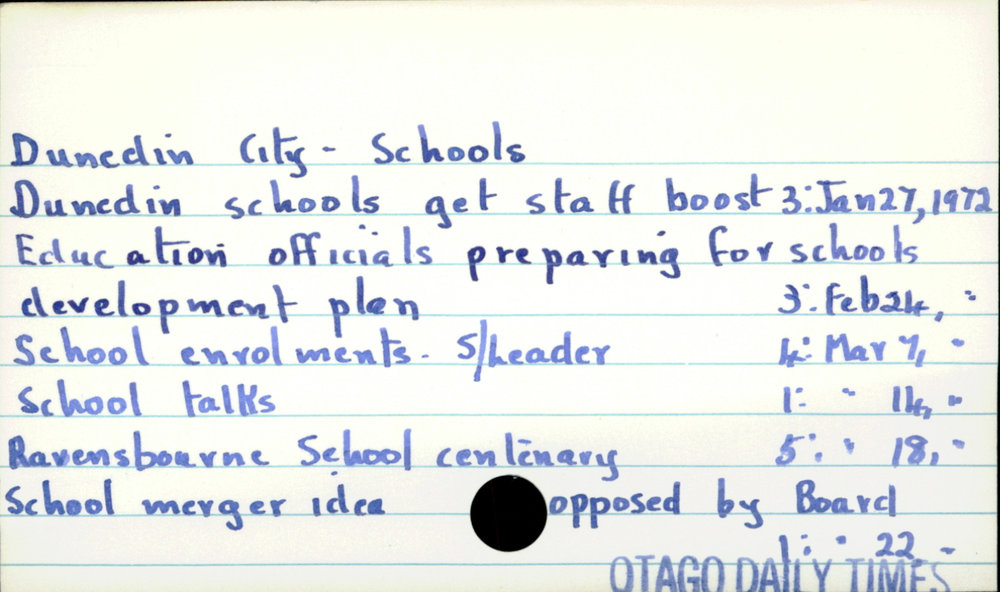 Dunedin City - Schools
Dunedin schools get staff boost 3: Jan 27, 1972
Education officials preparing for schools
development plan 3: Feb 24, "
School enrolments - S/Leader 4: Mar 7, "
School talks 1: " 14, "
Ravensbourne School centenary 5: " 18, "
School merger idea opposed by Board
1: " 22 "
OTAGO DAILY TIMES